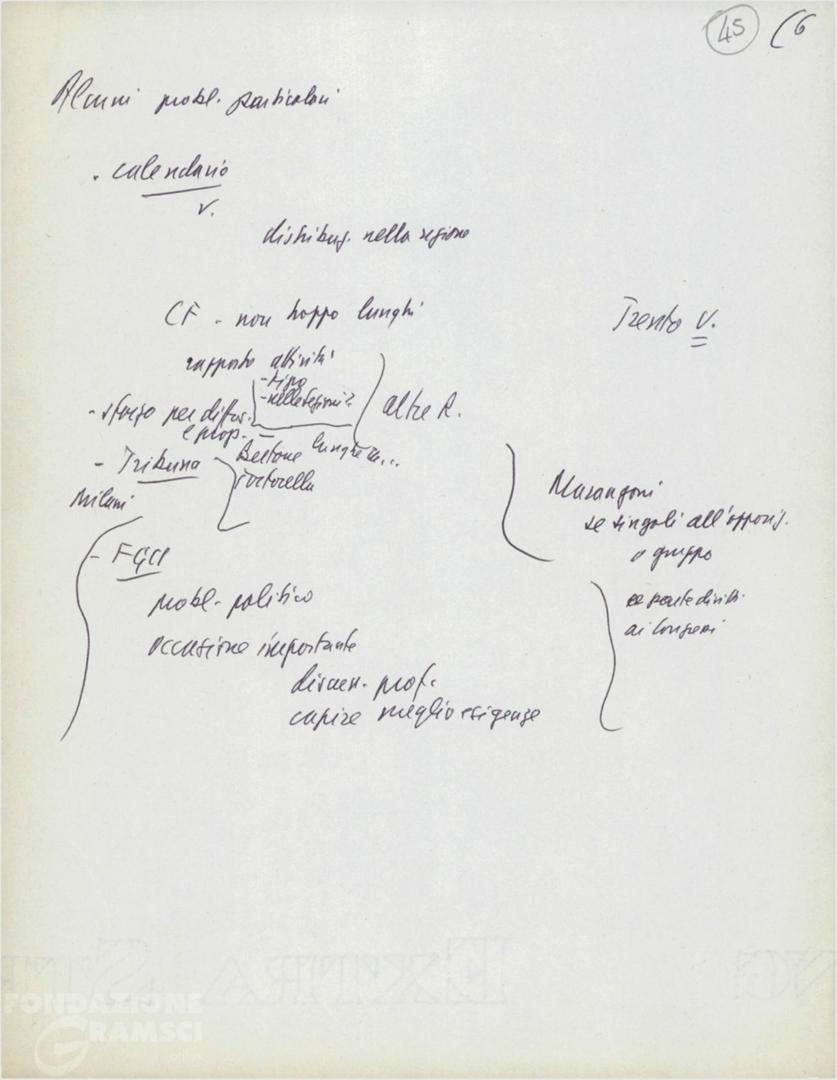 45 (6
Alcuni probl. particolari
. calendario
v.
distribuz. nella regione
CF - non troppo lunghi
Trento V.
rapporto attività
- tipo
- nelle regioni?
- sforzo per diffus.
e prop. -
altre R.
- Tribuna - Bertone lunghe
Tortorella
Milani
Marangoni
se singoli all'opposiz.
o gruppo
- FGCI
probl. politico
occasione importante
discuss. prof.
capire meglio esigenze
ai congressi
EXTRA
FONDAZIONE
GRAMSCI